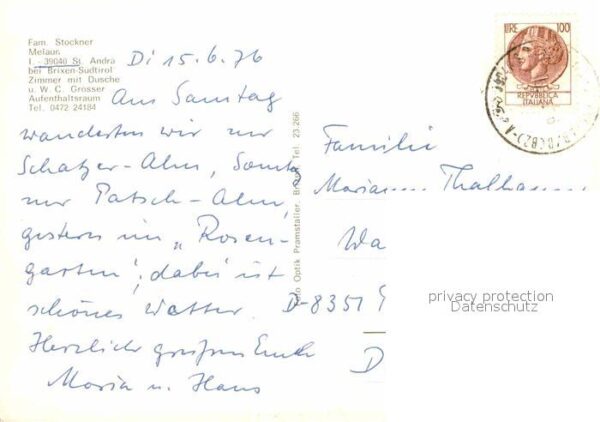 Fam. Stockner
Melaun
I. - 39040 St. Andrä
bei Brixen-Südtirol
Zimmer mit Dusche
u. W. C. Grosser
Aufenthaltsraum
Tel. 0472 24184
Di 15.6.76
Am Samstag
wanderten wir zur
Schatzer-Alm, Sonntag
zur Patsch-Alm,
gestern im „Rosen-
garten"; dabei ist
schönes Wetter.
Herzlich grüßen Euch
Maria u. Hans
Optik Pramstaller Tel. 23.266
LIRE 100
REPVBBLICA
ITALIANA
Familie
Thalhamm
Wa
D-8351
D
privacy protection
Datenschutz